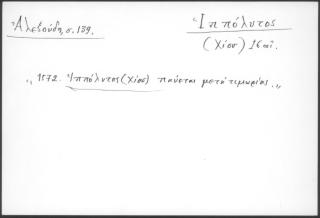 Ἀλεξούδη, σ. 139.
Ἱππόλυτος
(Χίου) 16 αἰ.
„ 1572. Ἱππόλυτος (Χίου) παύεται μετὰ τιμωρίας. „